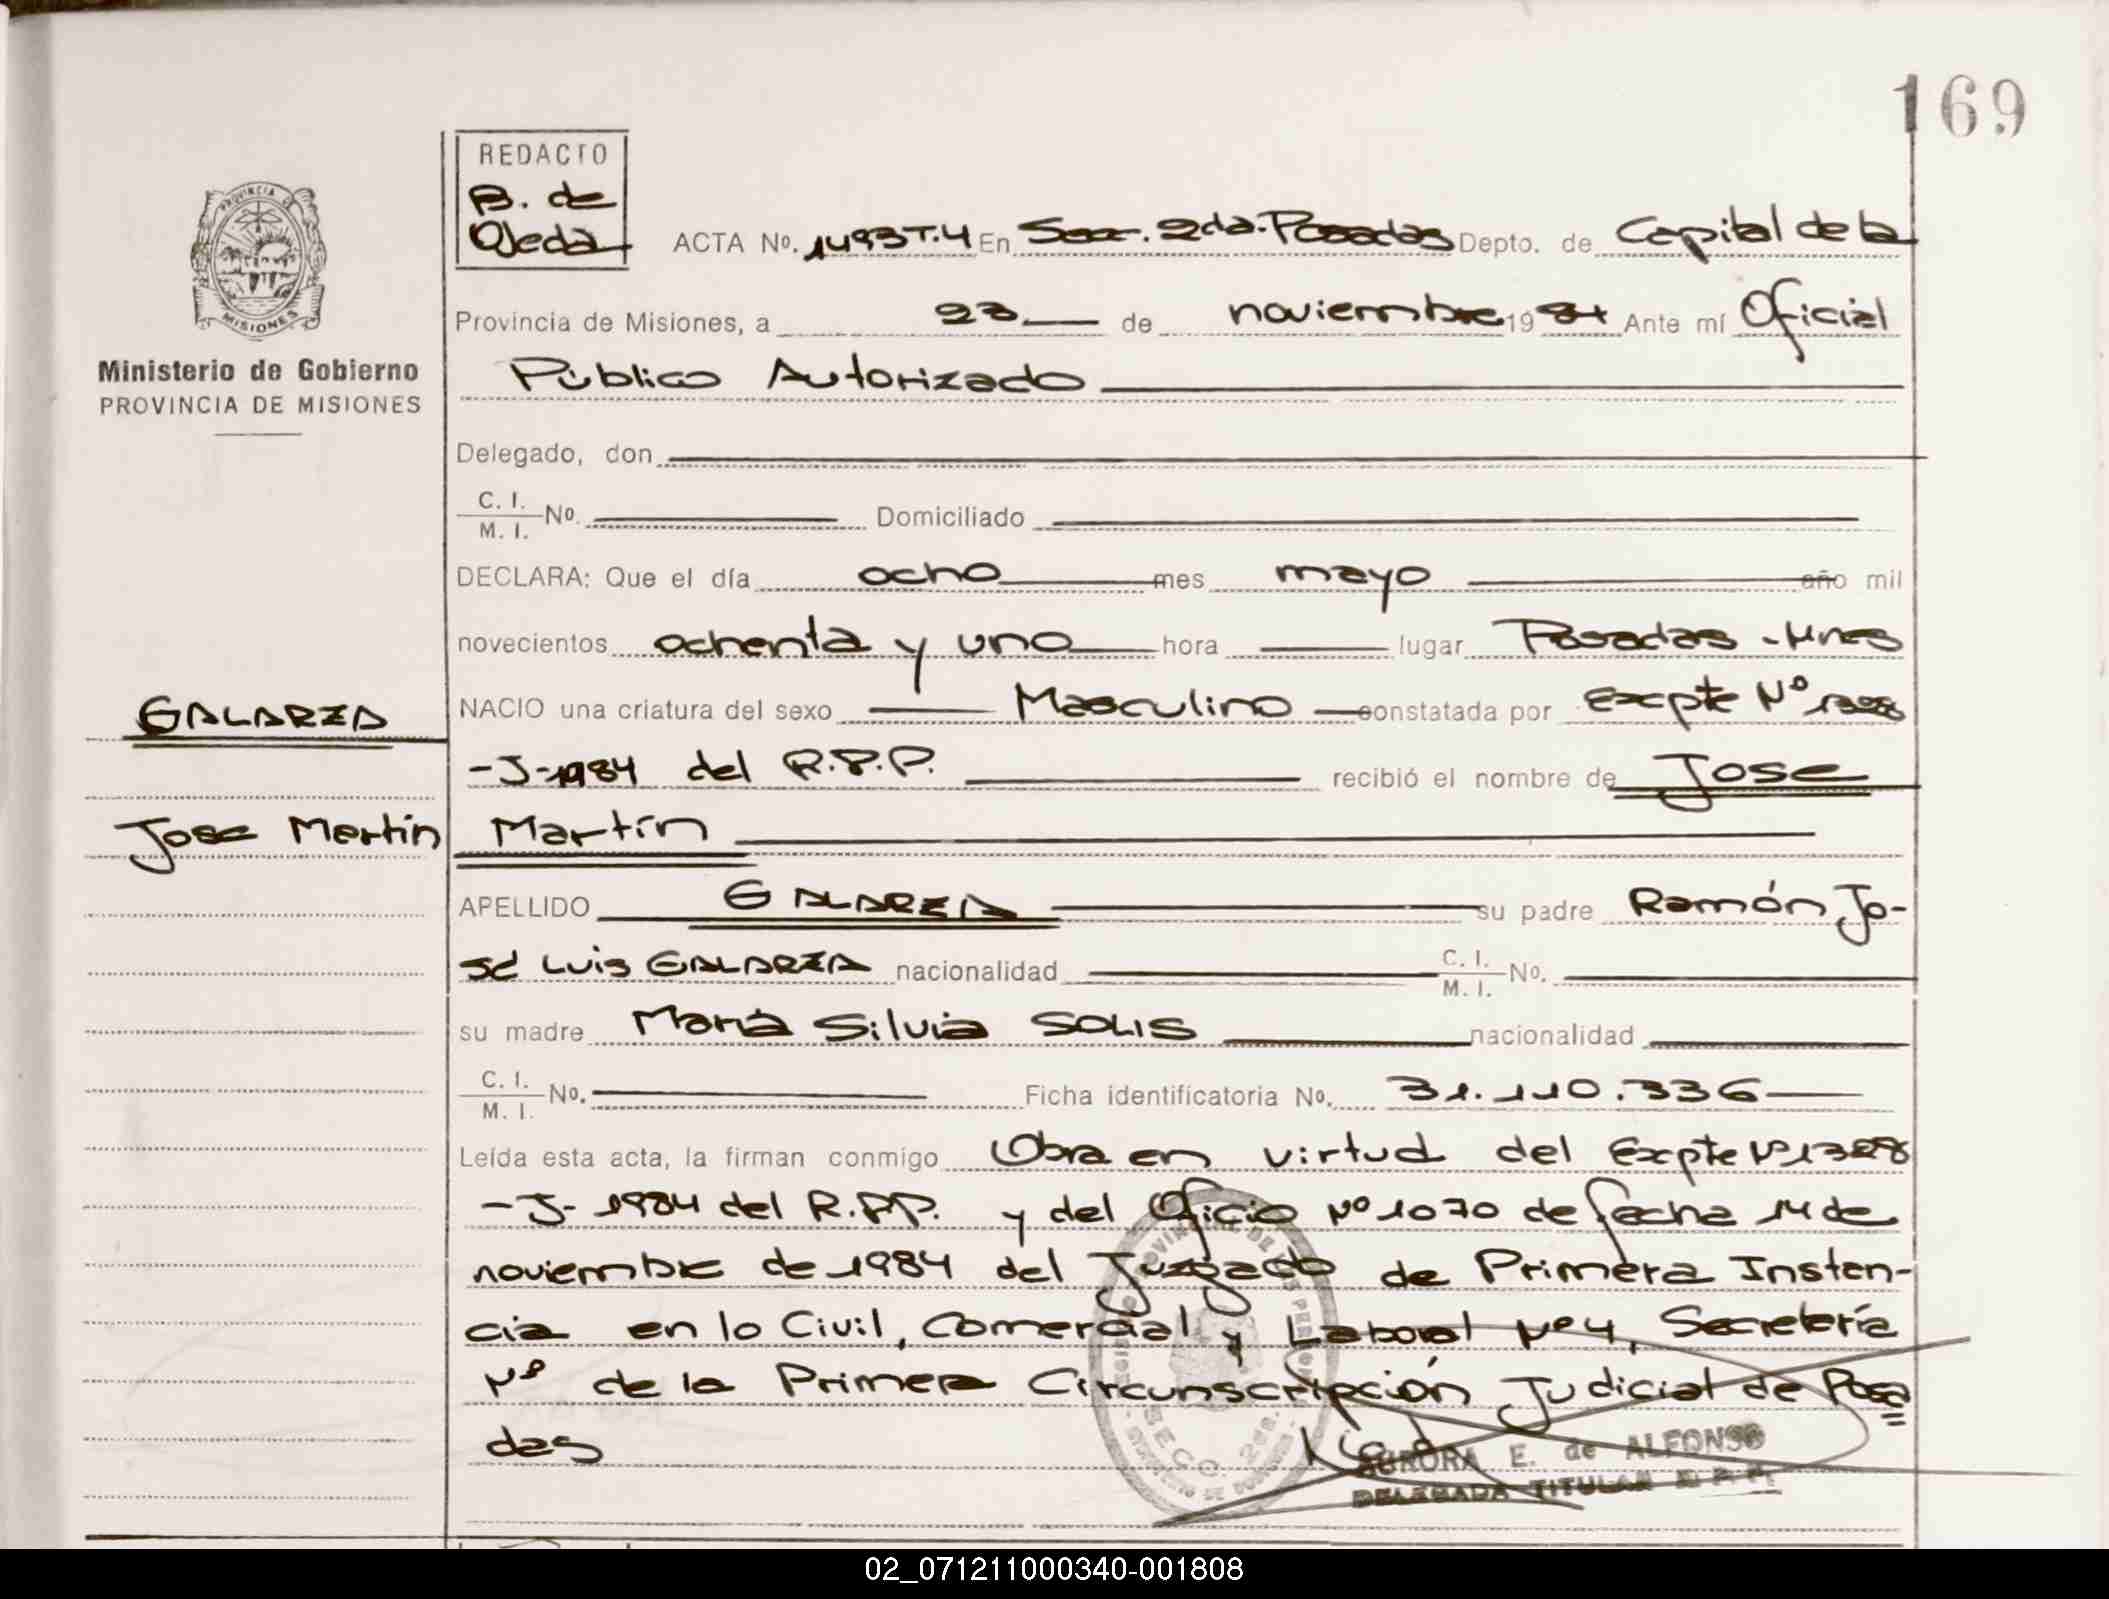 169
REDACTO
B. de
Ojeda
ACTA Nº. 1493T.4 En Secc. 2da. Posadas Depto. de Capital de la
Provincia de Misiones, a 23 de noviembre 1984 Ante mí Oficial
Público Autorizado
PROVINCIA
MISIONES
Ministerio de Gobierno
PROVINCIA DE MISIONES
Delegado, don
C. I.
M. I. Nº. Domiciliado
DECLARA: Que el día ocho mes mayo año mil
novecientos ochenta y uno hora lugar Posadas - Mnes
GALARZA
NACIO una criatura del sexo Masculino constatada por Excpte Nº
-J-1984 del R.P.P. recibió el nombre de Jose
Jose Martin
Martín
APELLIDO GALARZA su padre Ramón Jo-
sé Luis GALARZA nacionalidad C. I.
M. I. Nº.
su madre María Silvia SOLIS nacionalidad
C. I.
M. I. Nº. Ficha identificatoria Nº. 31.110.336
Leída esta acta, la firman conmigo Obra en virtud del Excpte Nº
-J- 1984 del R.P.P. y del Oficio Nº 1070 de fecha 14 de
noviembre de 1984 del Juzgado de Primera Instan-
cia en lo Civil, Comercial y Laboral Nº 4, Secretería
Nº de la Primera Circunscripción Judicial de Posa
das
AURORA E. de ALFONSO
DELEGADA TITULAR R. P. P.
02_071211000340-001808